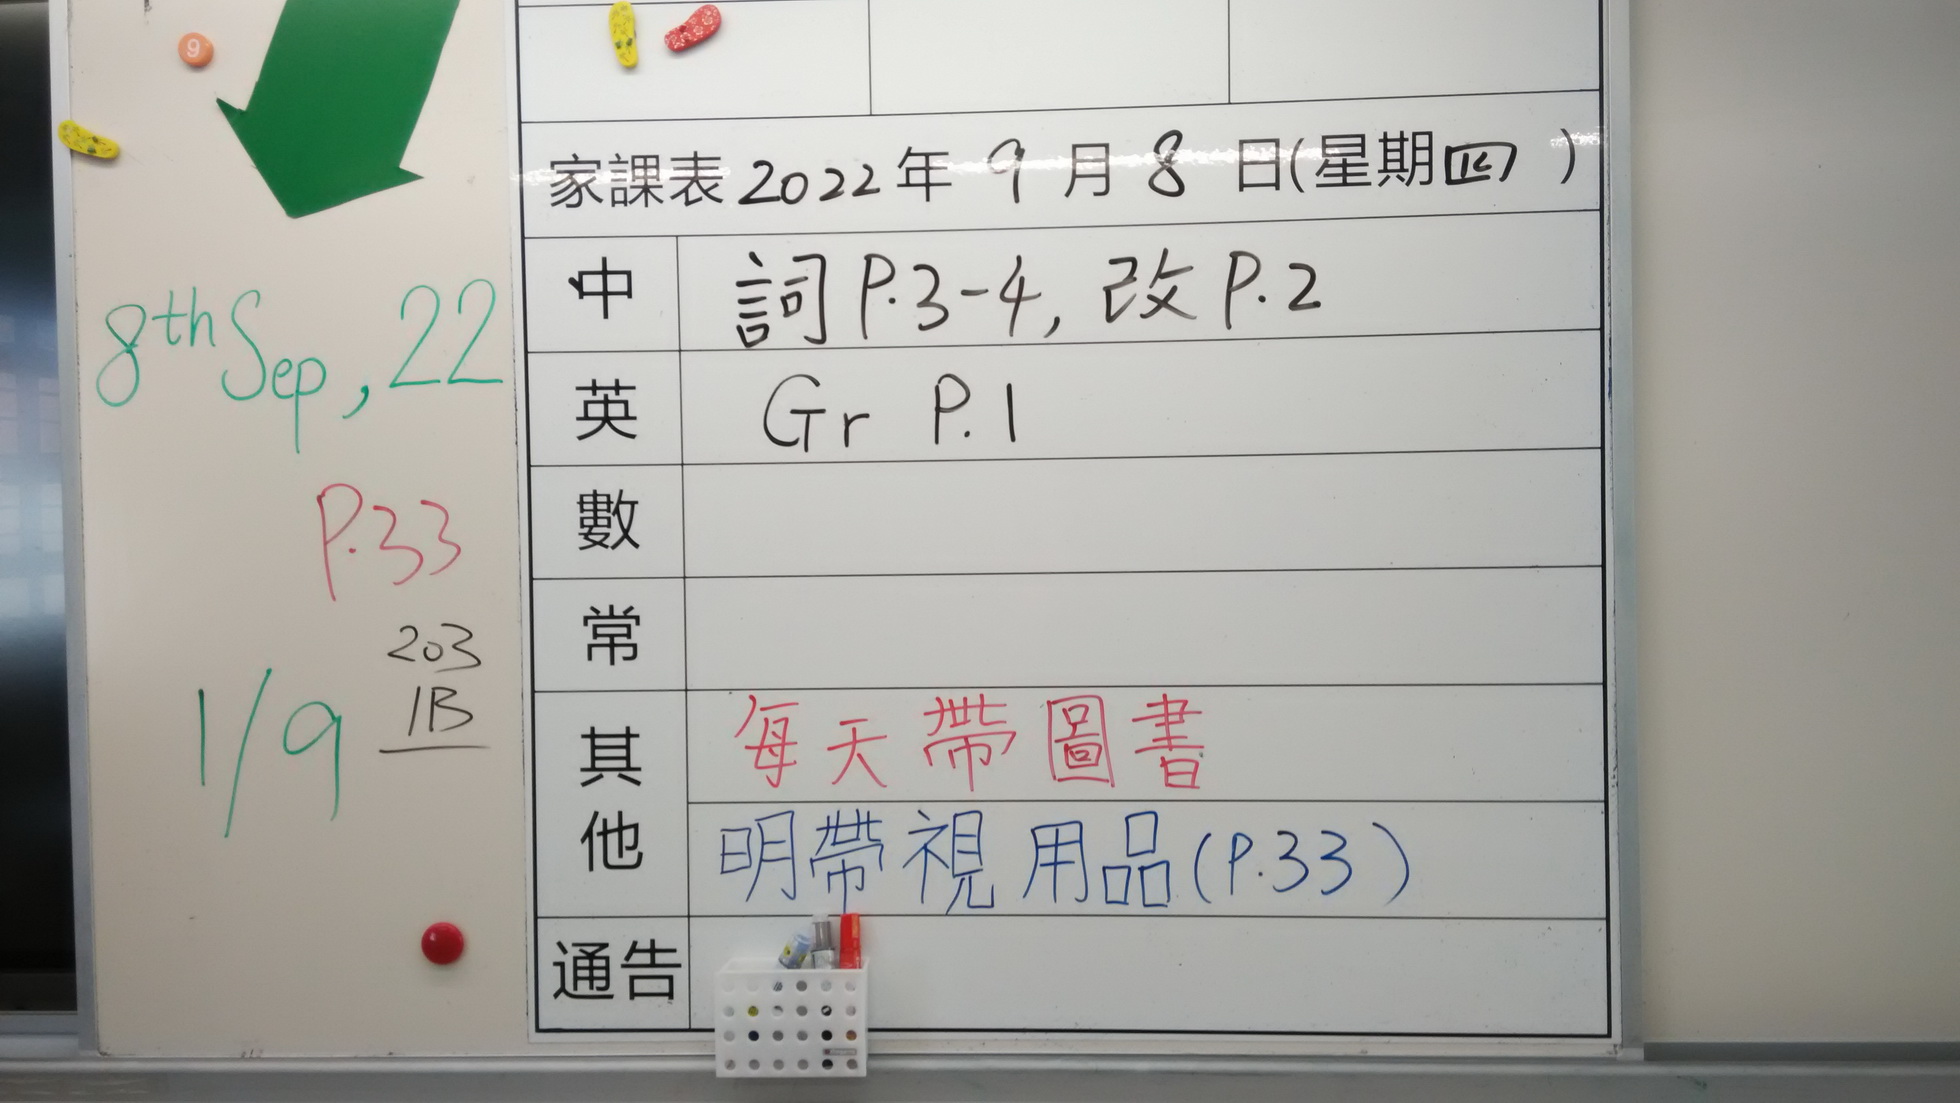 9
8th Sep, 22
P.33
203
1B
1/9
家課表 2022 年 9 月 8 日(星期四)
中 詞 P.3-4, 改 P.2
英 Gr P.1
數
常
其他 每天帶圖書
明帶視用品(P.33)
通告